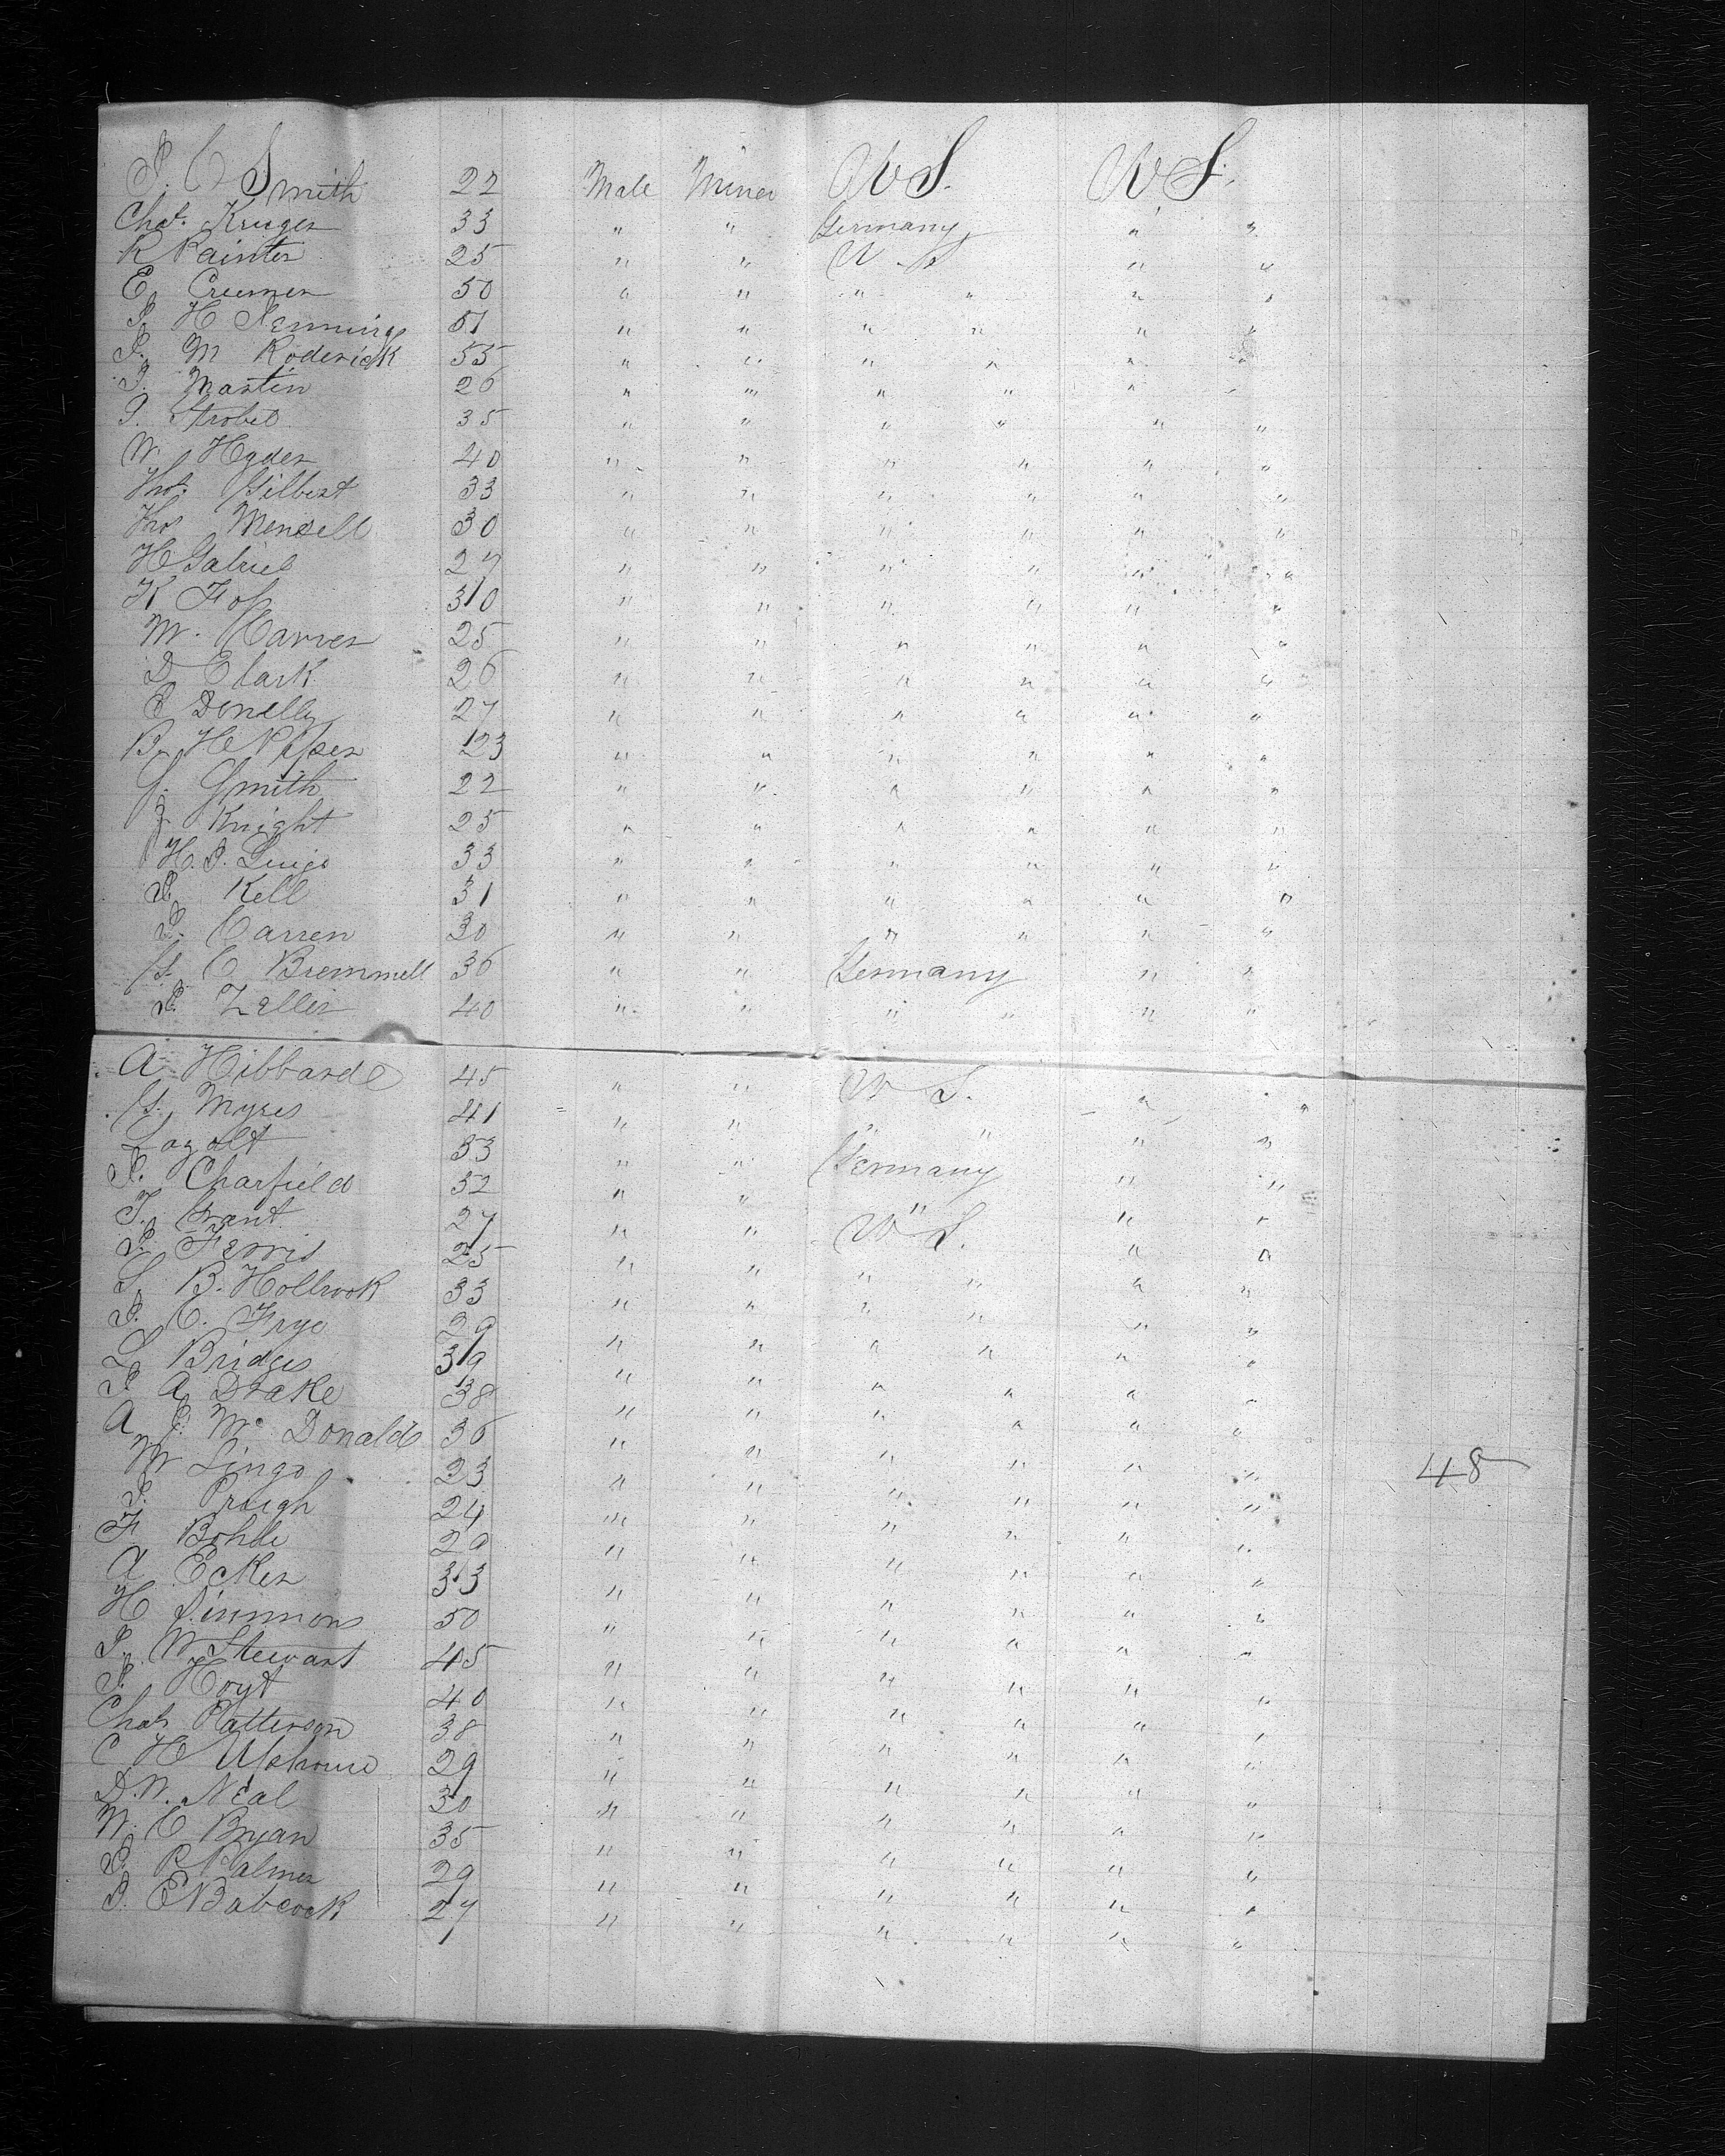 J. C Smith 22 Male Miner U S. U S.
Chas. Kruger 33 " " Germany " "
R Painter 25 " " U S " "
E. Creemer 50 " " " " " "
J. H Jennings 51 " " " " " "
J. M Roderick 55 " " " " " "
J. Martin 26 " " " " " "
J. Strobel 35 " " " " " "
W. Hyder 40 " " " " " "
Thos. Gilbert 33 " " " " " "
Thos Mensell 30 " " " " " "
H Gabriel 27 " " " " " "
K Fop 30 " " " " " "
M. Carver 25 " " " " " "
D Clark 26 " " " " " "
J Donelly 27 " " " " " "
B. H Piper 23 " " " " " "
J. Smith 22 " " " " " "
J Knight 25 " " " " " "
H. J. Luigo 33 " " " " " "
J. Kell 31 " " " " " "
J. Carren 30 " " " " " "
G. C Bremmell 36 " " Germany " "
J. Zeller 40 " " " " " "
A Hibbard 45 " " U S. " "
G. Myres 41 " " " " " "
Lagolt 33 " " Germany " "
J. Charfield 52 " " " " "
T. Grant 27 " " U S. " "
J. Ferris 25 " " " " " "
L. B. Holbrook 33 " " " " " "
J. C. Frye 29 " " " " " "
L Bridges 39 " " " " " "
J A Drake 38 " " " " " "
A J. Mc Donald 36 " " " " " "
M Lingo 23 " " " " " " 48
J. Prough 24 " " " " " "
F Bohle 29 " " " " " "
A Ecker 33 " " " " " "
H Simmons 50 " " " " " "
J. W Stewart 45 " " " " " "
J. Hoyt 40 " " " " " "
Chas Patterson 38 " " " " " "
C H 29 " " " " " "
D. W. Neal 30 " " " " " "
W. C Bryan 35 " " " " " "
J. P Palmer 29 " " " " " "
J. E Babcock 27 " " " " " "